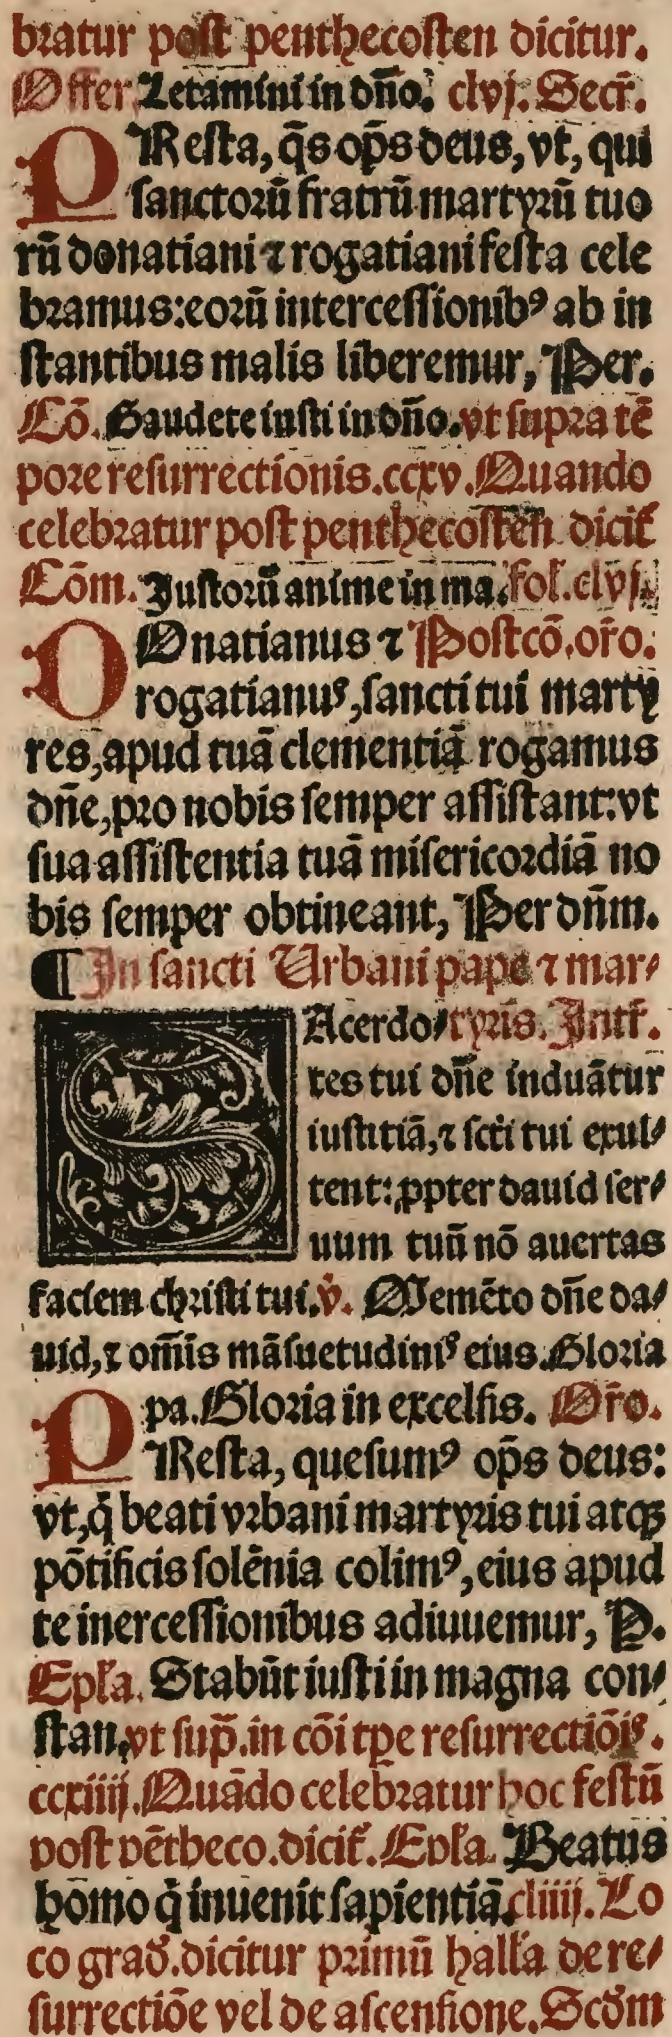 bratur post penthecosten dicitur.
Offer. Letamini in dño. clvj. Secr̃.
PResta, q̃s op̃s deus, vt, qui
sanctorũ fratrũ martyrũ tuo
rũ donatiani ⁊ rogatiani festa cele
bramus: eorũ intercessionibꝰ ab in
stantibus malis liberemur, Per.
Cõ. Gaudete iusti in dño. vt supra tẽ
pore resurrectionis. ccxv. Quando
celebratur post penthecosten dicit᷑
Cõm. Justorũ anime in ma. fol. clvj.
DOnatianus ⁊ Postcõ. or̃o.
rogatianꝰ, sancti tui marty
res, apud tuã clementiã rogamus
dñe, pro nobis semper assistant: vt
sua assistentia tuã misericordiã no
bis semper obtineant, Per dñm.
¶ In sancti Urbani pape ⁊ mar⸗
SAcerdo⸗ tyris. Intr̃.
tes tui dñe induãtur
iustitiã, ⁊ sctĩ tui exul⸗
tent: ꝓpter dauid ser⸗
uum tuũ nõ auertas
faciem christi tui. v̇. Memẽto dñe da⸗
uid, ⁊ om̃is mãsuetudinꝰ eius. Gloria
pa. Gloria in excelsis. Or̃o.
PResta, quesumꝰ op̃s deus:
vt, q̃ beati vrbani martyris tui atqꝫ
põtificis solẽnia colimꝰ, eius apud
te inercessionibus adiuuemur, P.
Epl̃a. Stabũt iusti in magna con⸗
stan. vt sup̃. in cõi tp̃e resurrectiõiꝰ.
ccxiiij. Quãdo celebratur hoc festũ
post pẽtheco. dicit᷑. Epl̃a. Beatus
homo q̃ inuenit sapientiã. cliiij. Lo
co grad̃. dicitur primũ hall̃a de re⸗
surrectiõe vel de ascensione. Scd̃m